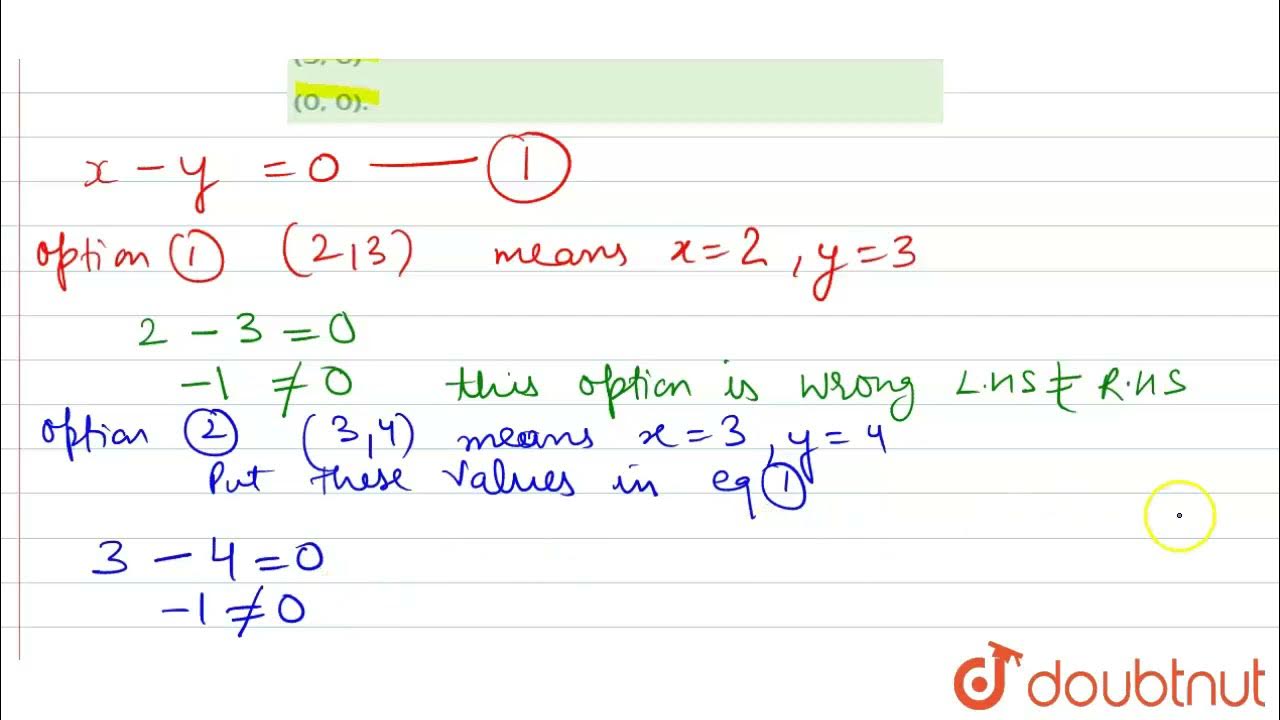 (0, 0).
x - y = 0 — ①
option ① (2,3) means x = 2, y = 3
2 - 3 = 0
-1 ≠ 0 this option is wrong L.HS ≠ R.HS
option ② (3,4) means x = 3, y = 4
Put these values in eq ①
3 - 4 = 0
-1 ≠ 0
doubtnut